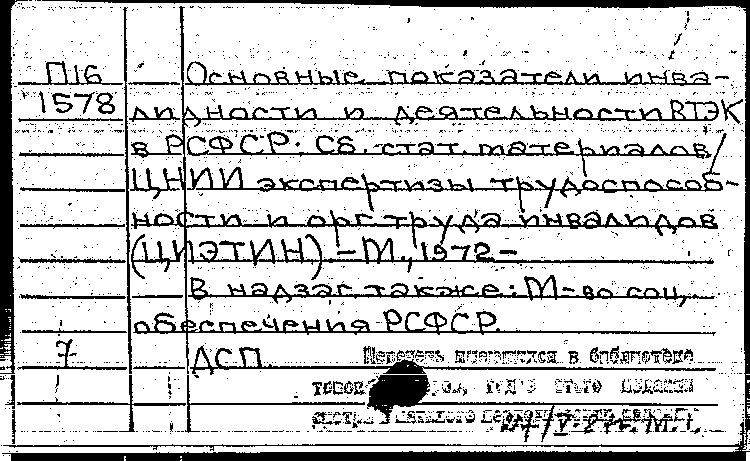 П16 Основные показатели инва-
1578 лидности и деятельности ВТЭК
в РСФСР: Сб. стат. материалов/
ЦНИИ экспертизы трудоспособ-
ности и орг. труда инвалидов
(ЦИЭТИН). – М., 1972 –
В надзаг. также: М-во соц.
обеспечения РСФСР.
7 ДСП
Перечень имеющихся в библиотеке
томов, этого издания